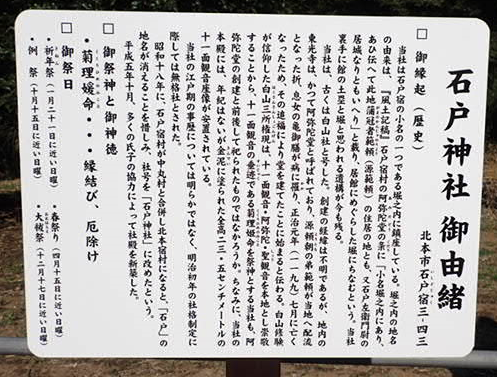 石戸神社 御由緒
北本市石戸宿三-四三
□ 御縁起(歴史)
当社は石戸宿の小名の一つである堀之内に鎮座している。堀之内の地名
の由来は、『風土記稿』石戸宿村の阿弥陀堂の条に「小名堀之内にあり、
あひ伝へて此地蒲冠者範頼(源範頼)の住居の地とも、又石戸左衛門尉の
居城なりともいへり」と載り、居館にめぐらした堀にちなむという。当社
裏手に館の土塁と堀と思われる遺構が今も残る。
当社は、古くは白山社と号した。創建の経緯は不明であるが、地内の
東光寺は、かつて阿弥陀堂と呼ばれており、源頼朝の弟範頼が当地へ配流
となった所、息女の亀御前が病に罹り、正治元年(一一九九)七月に亡く
なったため、その追福により堂を建てたことに始まると伝わる。白山修験
が信仰した白山三所権現は十一面観音・阿弥陀・聖観音を本地とし崇敬
することから、十一面観音の垂迹である菊理姫命を祭神とする当社も、阿
弥陀堂の創建と前後して祀られたものではなかろうか。ちなみに、当社の
本殿には、年紀はないが金泥に塗られた全高二三・五センチメートルの
十一面観音座像が安置されている。
当社の江戸期の事歴については明らかではなく、明治初年の社格制定に
際しては無格社とされた。
昭和十八年に、石戸宿村が中丸村と合併し北本宿村になると、「石戸」の
地名が消えることを惜しみ、社号を「石戸神社」に改めたという。
平成五年十月、多くの氏子の協力によって社殿を新築した。
□ 御祭神と御神徳
・菊理媛命・・・縁結び、厄除け
□ 御祭日
・祈年祭(二月二十一日に近い日曜) ・春祭り(四月十五日に近い日曜)
・例 祭(十月十五日に近い日曜) ・大祓祭(十二月十七日に近い日曜)